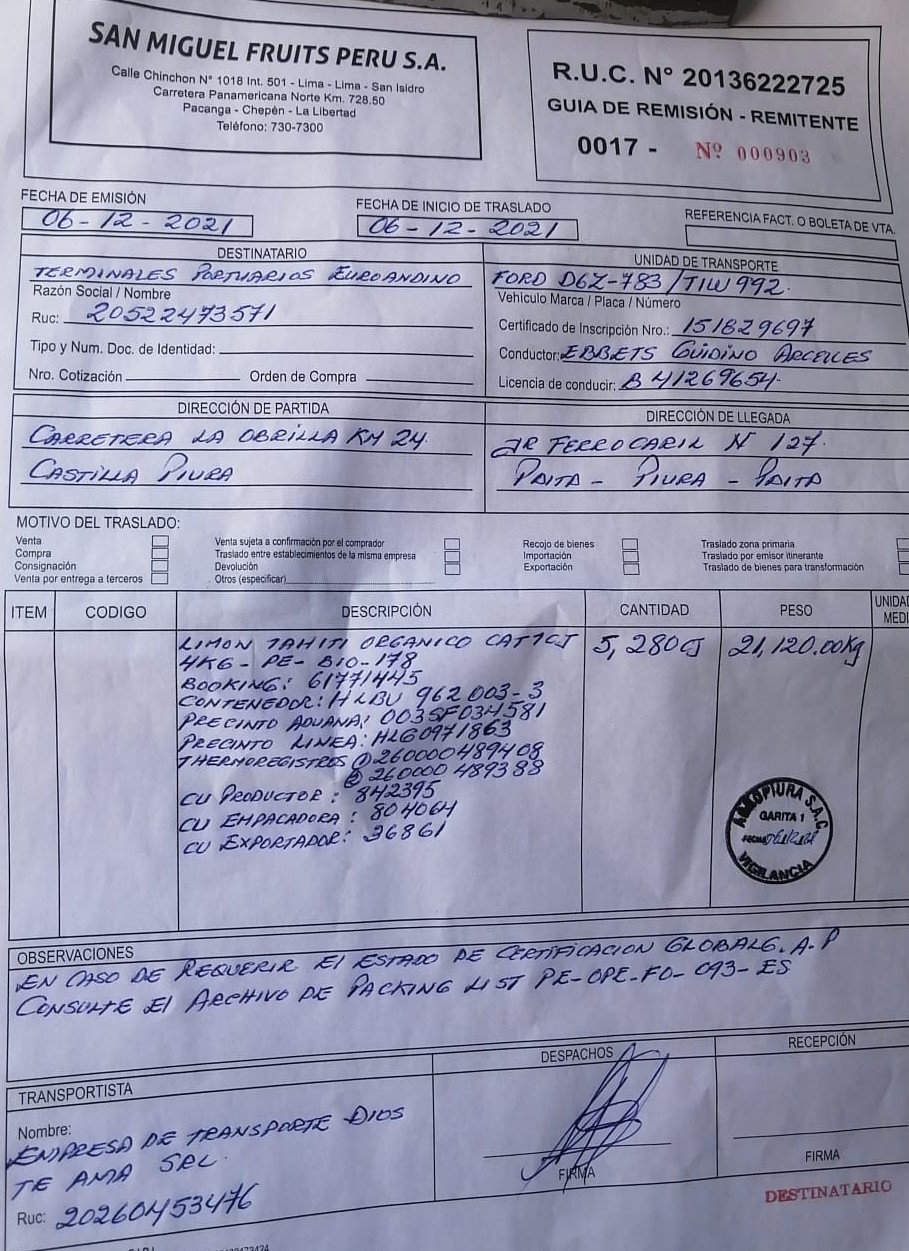 SAN MIGUEL FRUITS PERU S.A.
Calle Chinchon N° 1018 Int. 501 - Lima - Lima - San Isidro
Carretera Panamericana Norte Km. 728.50
Pacanga - Chepén - La Libertad
Teléfono: 730-7300
R.U.C. N° 20136222725
GUIA DE REMISIÓN - REMITENTE
0017 - Nº 000903
FECHA DE EMISIÓN
06-12-2021
FECHA DE INICIO DE TRASLADO
06-12-2021
REFERENCIA FACT. O BOLETA DE VTA.
DESTINATARIO
TERMINALES PORTUARIOS EUROANDINO
Razón Social / Nombre
Ruc: 20522473571
Tipo y Num. Doc. de Identidad:
Nro. Cotización Orden de Compra
UNIDAD DE TRANSPORTE
FORD D6Z-783/TIW992.
Vehículo Marca / Placa / Número
Certificado de Inscripción Nro.: 151829697
Conductor: EBBETS GUIDINO ARCELLES
Licencia de conducir: B 41269654-
DIRECCIÓN DE PARTIDA
CARRETERA LA OBRILLA KM 24.
CASTILLA PIURA
DIRECCIÓN DE LLEGADA
JR FERROCARIL N° 127.
PAITA - PIURA - PAITA
MOTIVO DEL TRASLADO:
Venta
Compra
Consignación
Venta por entrega a terceros
Venta sujeta a confirmación por el comprador
Traslado entre establecimientos de la misma empresa
Devolución
Otros (especificar)
Recojo de bienes
Importación
Exportación
Traslado zona primaria
Traslado por emisor itinerante
Traslado de bienes para transformación
ITEM CODIGO DESCRIPCIÓN CANTIDAD PESO UNIDAD MEDI
LIMON TAHITI ORGANICO CAT1CJ 5,280CJ 21,120.00Kg
4KG - PE- BIO-178
BOOKING: 61771445
CONTENEDOR: HLBU 962003-3
PRECINTO ADUANA: 003SF034581
PRECINTO LINEA: HLG0971863
THERMOREGISTROS ① 260000489408
② 260000489388
CU PRODUCTOR: 842395
CU EMPACADORA: 804064
CU EXPORTADOR: 36861
GARITA 1
VIGILANCIA
OBSERVACIONES
EN CASO DE REQUERIR El ESTADO DE CERTIFICACION GLOBALG.A.P
CONSULTE El ARCHIVO DE PACKING LIST PE-OPE-FO-093-ES
TRANSPORTISTA
Nombre:
EMPRESA DE TRANSPORTE DIOS
TE AMA SRL.
Ruc: 20260453476
DESPACHOS
FIRMA
RECEPCIÓN
FIRMA
DESTINATARIO